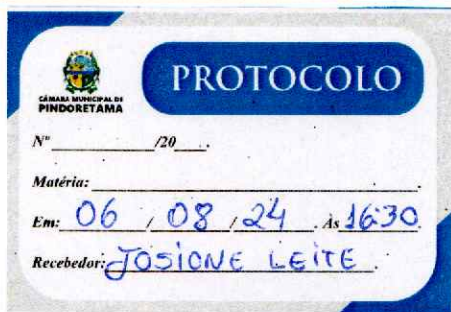 CÂMARA MUNICIPAL DE
PINDORETAMA
PROTOCOLO
Nº ________ /20 ____.
Matéria: ________.
Em: 06 / 08 / 24. Às 16:30.
Recebedor: JOSIONE LEITE.